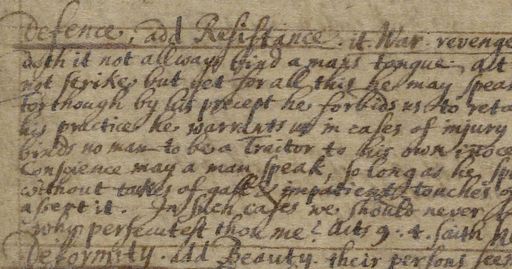 Defence, add Resistance. it. War. revenge
doth it not allways bind a mans tongue, alt
not strike but yet for all this he may spea
for though by his precept he forbids us to reta
his practice he warrants us in cases of injury
binds no man to be a Tractor to his own
Conscience may a man speak, so long as he sp
without of gall & impatient touches o
it. In such cases we should never
why persecutest thou me? Acts 9. 4. saith
Deformity. add Beauty. their persons seem